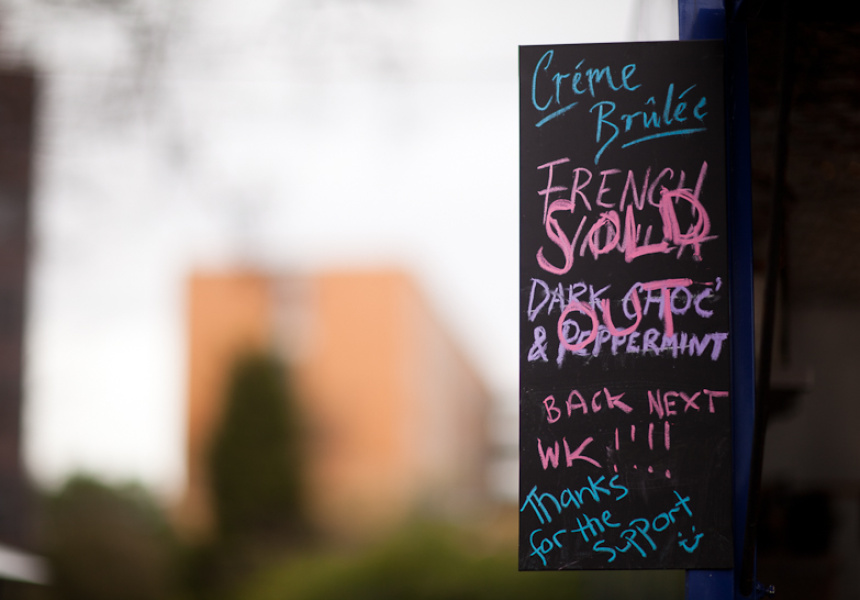 Créme
Brûlée
FRENCH
VANILLA
SOLD
DARK CHOC'
OUT
& PEPPERMINT
BACK NEXT
WK !!!!
Thanks
for the
support